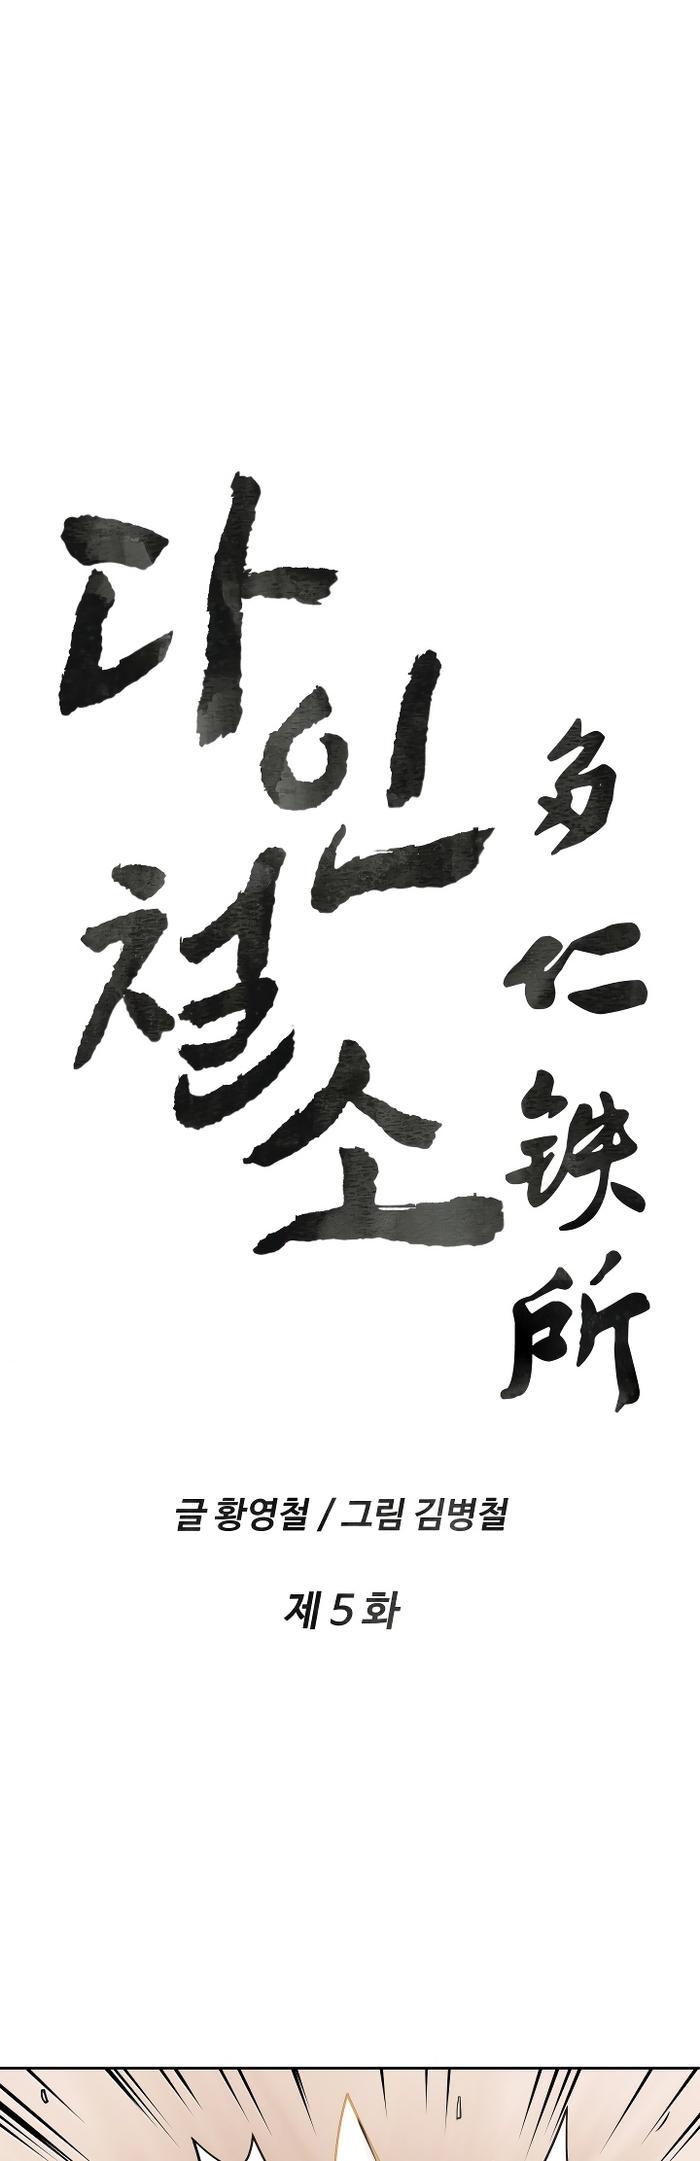 다인
철소
多仁铁所
글 황영철 / 그림 김병철
제 5 화